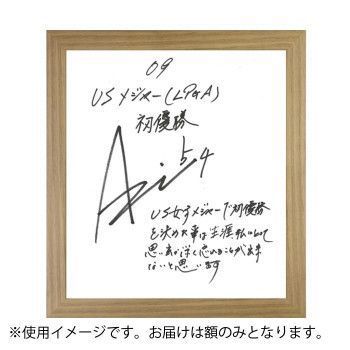 09
USメジャー(LPGA)
初優勝
Ai 54
US女子メジャーで初優勝
を決めた事は生涯私にとって
思い出深く忘れることが出来
ないと思います
※使用イメージです。お届けは額のみとなります。